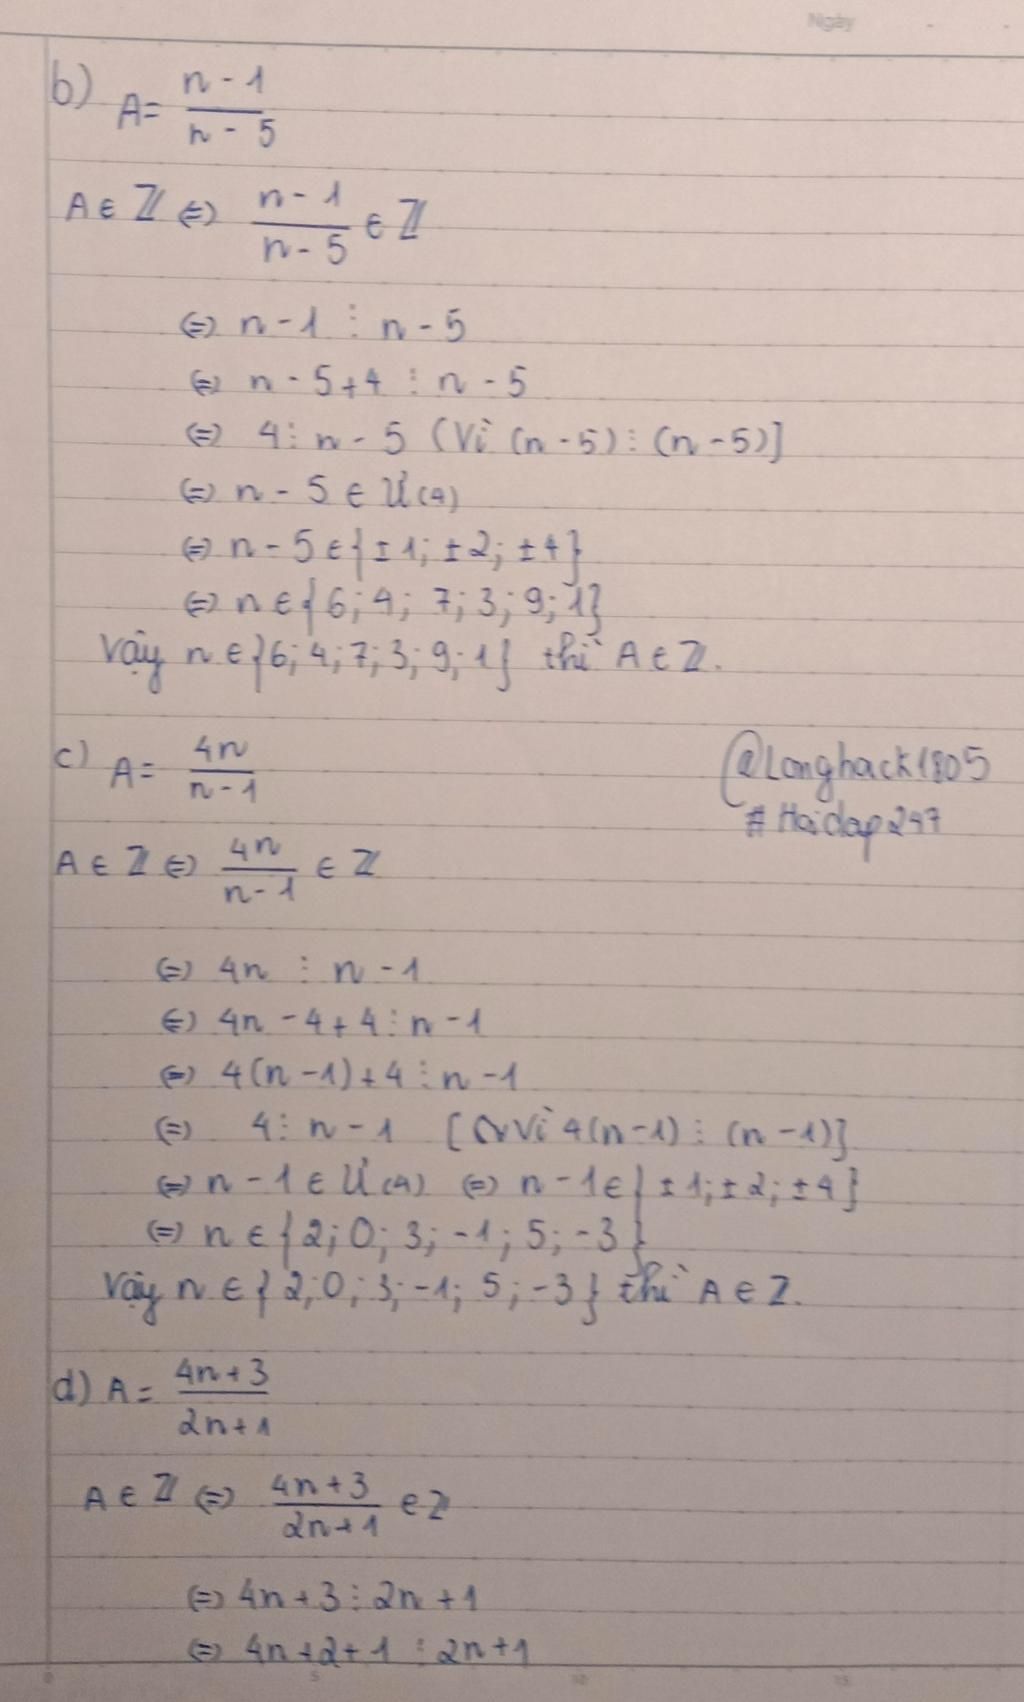 Ngày
b) A = \frac{n - 1}{n - 5}
A ∈ ℤ ⇔ \frac{n - 1}{n - 5} ∈ ℤ
⇔ n - 1 ⋮ n - 5
⇔ n - 5 + 4 ⋮ n - 5
⇔ 4 ⋮ n - 5 (Vì (n - 5) ⋮ (n - 5)]
⇔ n - 5 ∈ Ư(4)
⇔ n - 5 ∈ {± 1; ± 2; ± 4}
⇔ n ∈ {6; 4; 7; 3; 9; 1}
Vậy n ∈ {6; 4; 7; 3; 9; 1} thì A ∈ ℤ.
c) A = \frac{4n}{n - 1}
@Longhack1805
# Hoidap247
A ∈ ℤ ⇔ \frac{4n}{n - 1} ∈ ℤ
⇔ 4n ⋮ n - 1
⇔ 4n - 4 + 4 ⋮ n - 1
⇔ 4(n - 1) + 4 ⋮ n - 1
⇔ 4 ⋮ n - 1 [Vì 4(n - 1) ⋮ (n - 1)]
⇔ n - 1 ∈ Ư(4) ⇔ n - 1 ∈ {± 1; ± 2; ± 4}
⇔ n ∈ {2; 0; 3; -1; 5; -3}
Vậy n ∈ {2; 0; 3; -1; 5; -3} thì A ∈ ℤ.
d) A = \frac{4n + 3}{2n + 1}
A ∈ ℤ ⇔ \frac{4n + 3}{2n + 1} ∈ ℤ
⇔ 4n + 3 ⋮ 2n + 1
⇔ 4n + 2 + 1 ⋮ 2n + 1
0 5 10 15